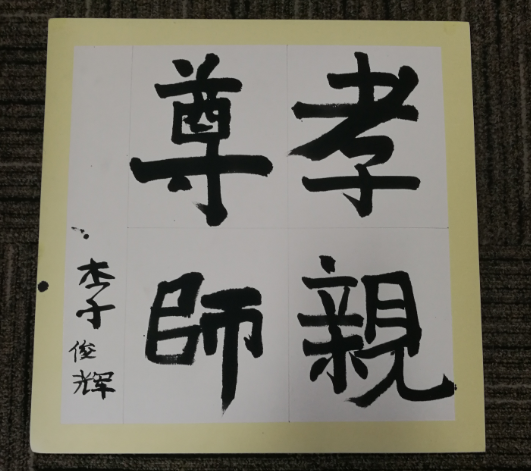 孝親
尊師
李子俊辉